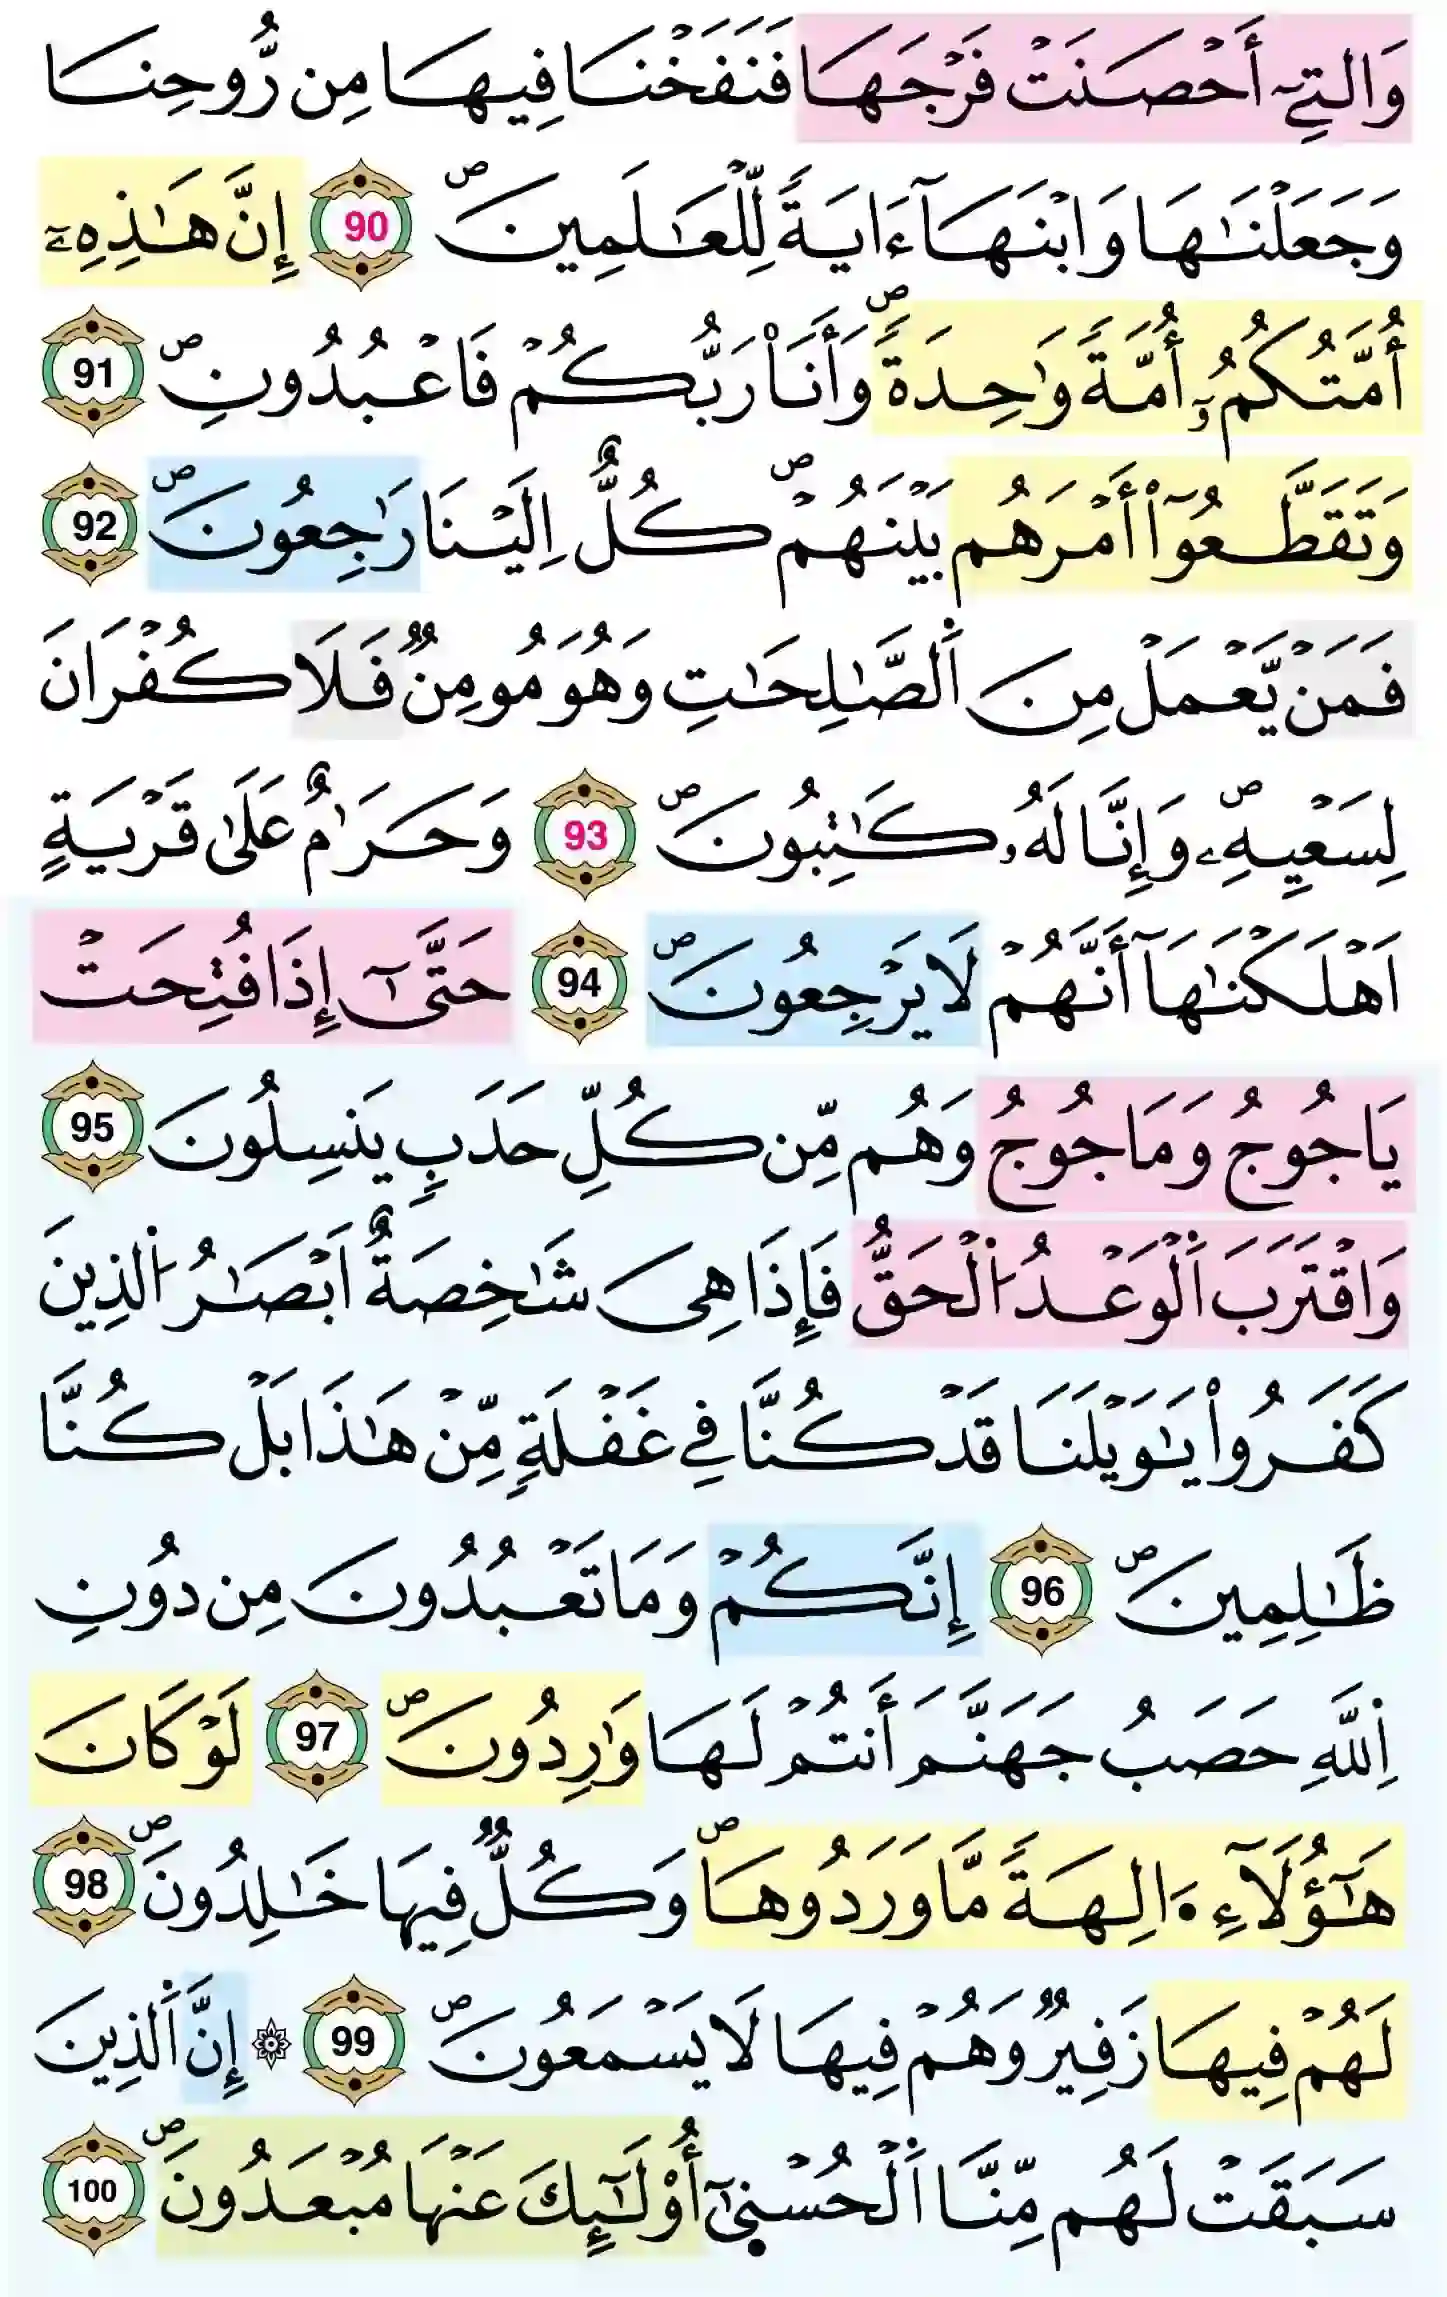 وَالتِےٓ أَحْصَنَتْ فَرْجَهَا فَنَفَخْنَا فِيهَا مِن رُّوحِنَا
وَجَعَلْنَٰهَا وَابْنَهَآ ءَايَةٗ لِّلْعَٰلَمِينَۖ 90 إِنَّ هَٰذِهِۦٓ
أُمَّتُكُمُۥٓ أُمَّةٗ وَٰحِدَةٗۖ وَأَنَا۠ رَبُّكُمْ فَاعْبُدُونِۖ 91
وَتَقَطَّعُوٓاْ أَمْرَهُم بَيْنَهُمْۖ كُلٌّ اِلَيْنَا رَٰجِعُونَۖ 92
فَمَنْ يَّعْمَلْ مِنَ اَ۬لصَّٰلِحَٰتِ وَهُوَ مُومِنٞ فَلَا كُفْرَانَ
لِسَعْيِهِۦۖ وَإِنَّا لَهُۥ كَٰتِبُونَۖ 93 وَحَرَٰمٌ عَلَىٰ قَرْيَةٍ
اَهْلَكْنَٰهَآ أَنَّهُمْ لَا يَرْجِعُونَۖ 94 حَتَّىٰٓ إِذَا فُتِحَتْ
يَاجُوجُ وَمَاجُوجُ وَهُم مِّن كُلِّ حَدَبٖ يَنسِلُونَ 95
وَاقْتَرَبَ اَ۬لْوَعْدُ اُ۬لْحَقُّ فَإِذَا هِيَ شَٰخِصَةٌ اَبْصَٰرُ اُ۬لذِينَ
كَفَرُواْ يَٰوَيْلَنَا قَدْ كُنَّا فِے غَفْلَةٖ مِّنْ هَٰذَا بَلْ كُنَّا
ظَٰلِمِينَۖ 96 إِنَّكُمْ وَمَا تَعْبُدُونَ مِن دُونِ
اِ۬للَّهِ حَصَبُ جَهَنَّمَ أَنتُمْ لَهَا وَٰرِدُونَۖ 97 لَوْ كَانَ
هَٰٓؤُلَآءِ اٰلِهَةٗ مَّا وَرَدُوهَاۖ وَكُلّٞ فِيهَا خَٰلِدُونَۖ 98
لَهُمْ فِيهَا زَفِيرٞ وَهُمْ فِيهَا لَا يَسْمَعُونَۖ 99 ۞ إِنَّ اَ۬لذِينَ
سَبَقَتْ لَهُم مِّنَّا اَ۬لْحُسْنَىٰٓ أُوْلَٰٓئِكَ عَنْهَا مُبْعَدُونَۖ 100